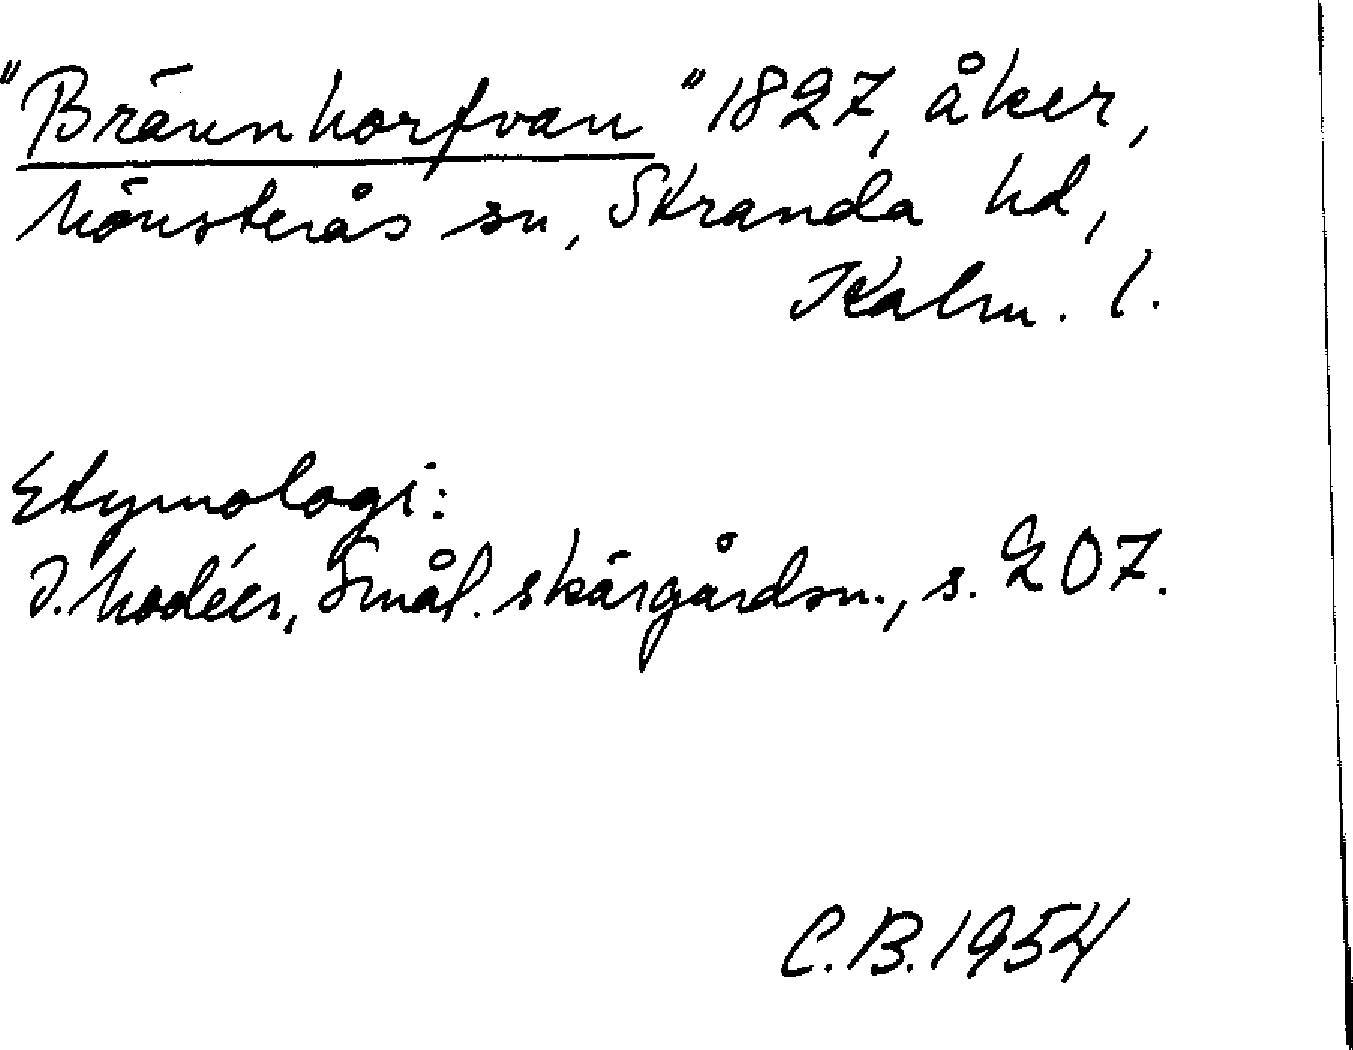 "Brännhorfvan" 1827, åker,
Mönsterås sn, Stranda hd,
Kalm. l.
Etymologi:
I. Modéer, Smål. skärgårdsn., s. 207.
C.B. 1954